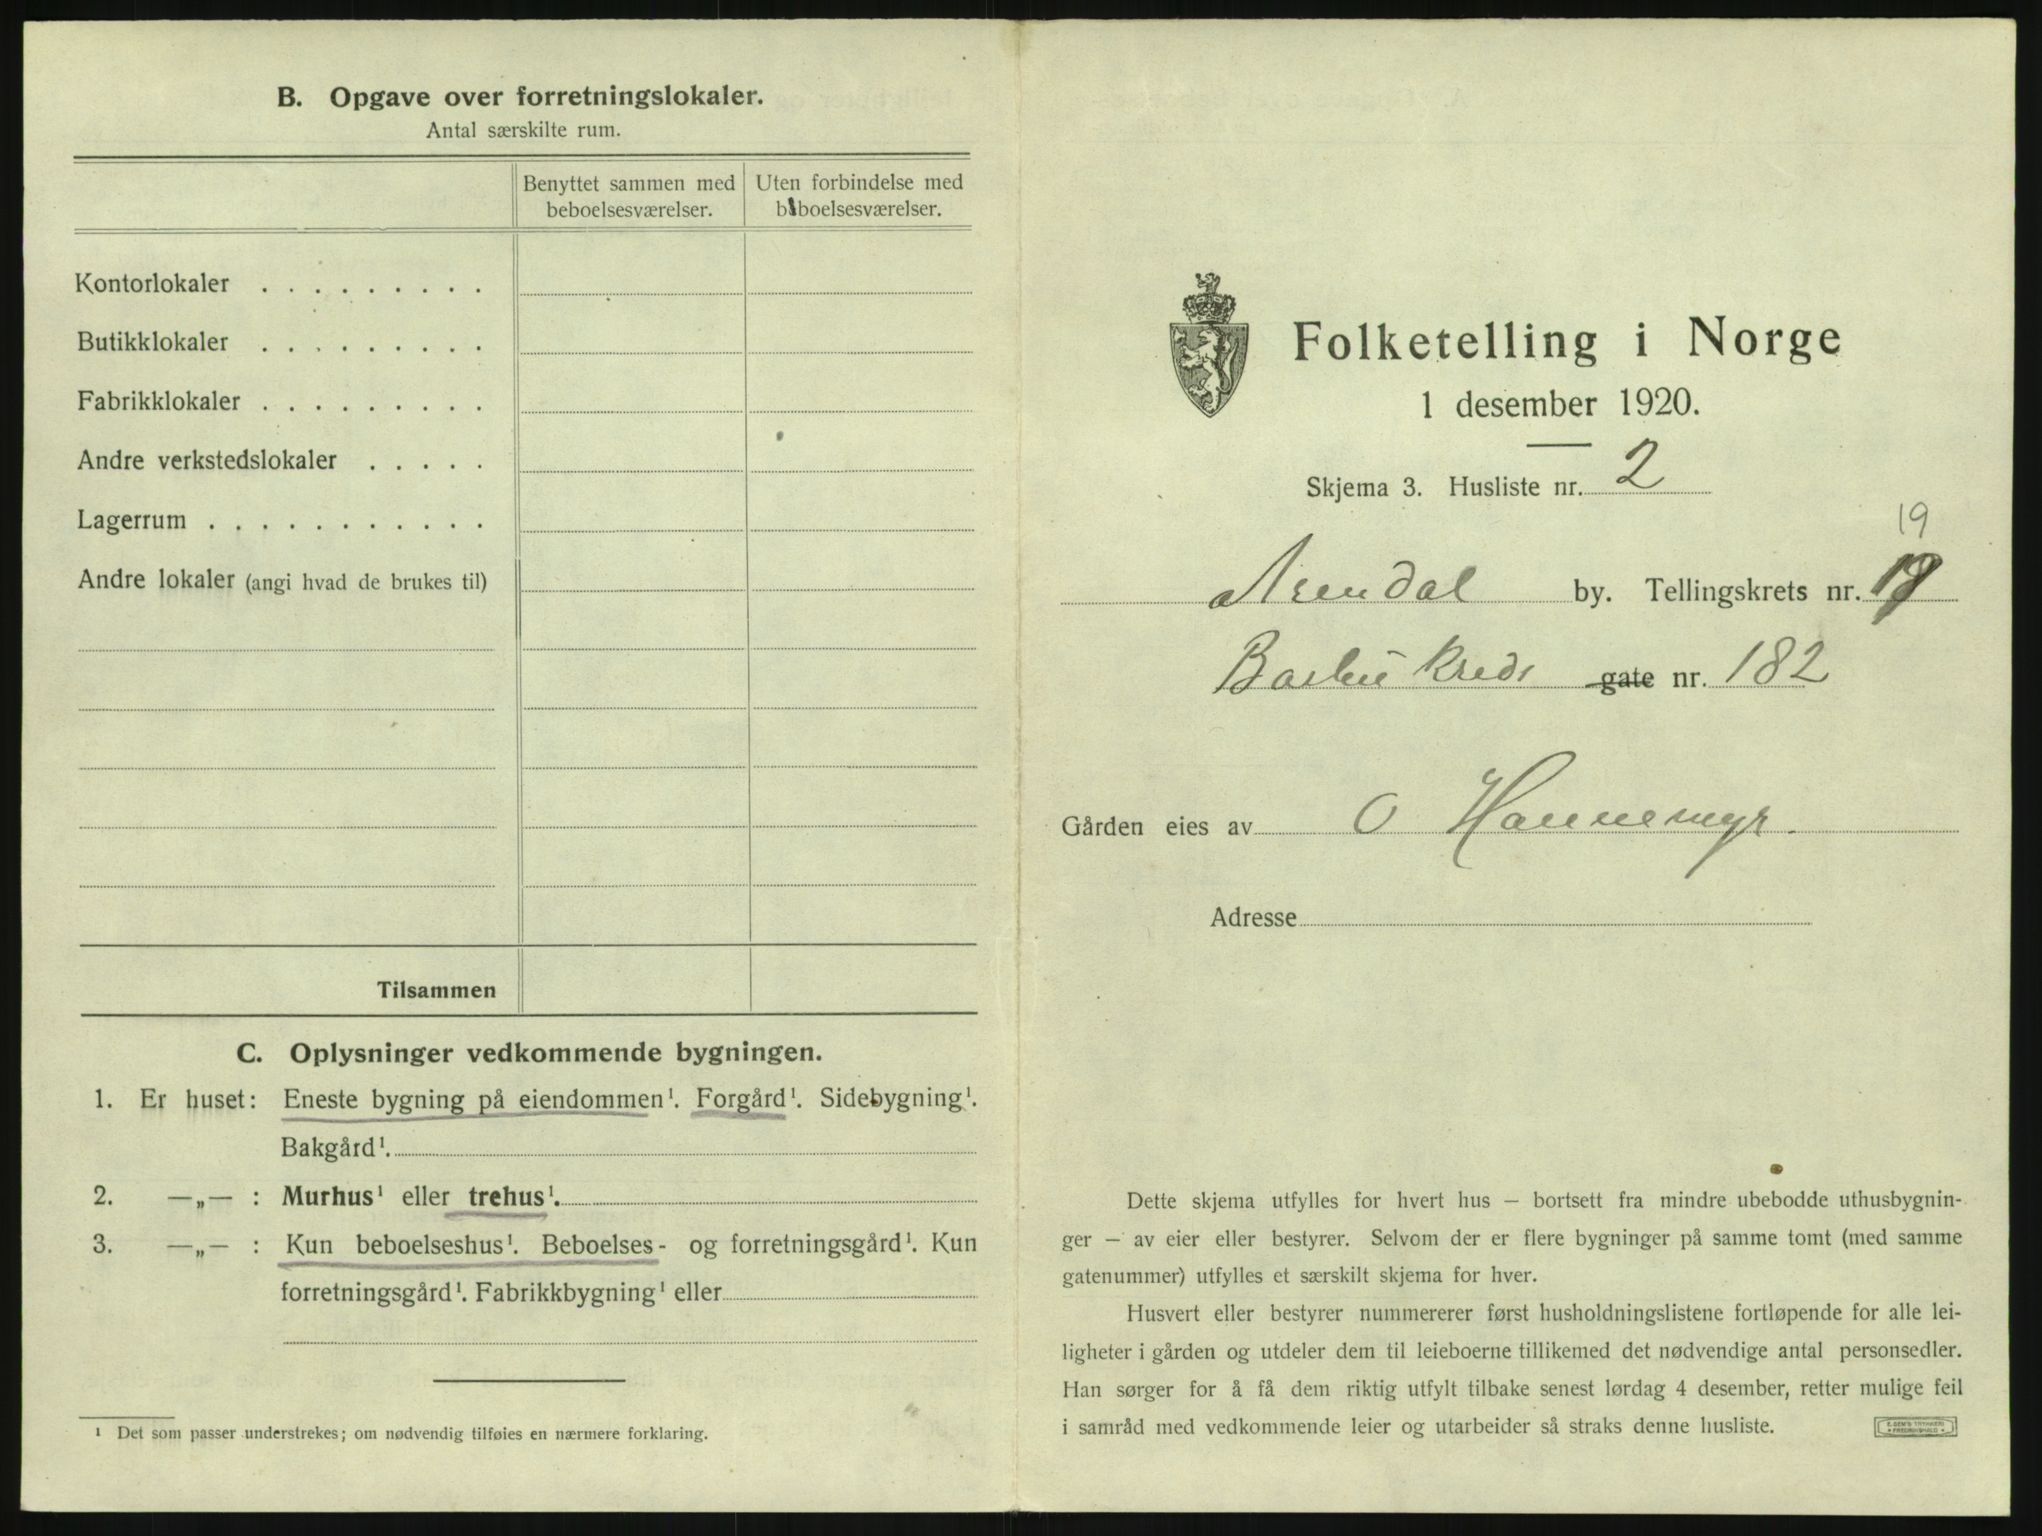 B. Opgave over forretningslokaler.
Antal særskilte rum.
Benyttet sammen med beboelsesværelser.
Uten forbindelse med beboelsesværelser.
Kontorlokaler . . . . . . . . .
Butikklokaler . . . . . . . . .
Fabrikklokaler . . . . . . . . .
Andre verkstedslokaler . . . . .
Lagerrum . . . . . . . . . . .
Andre lokaler (angi hvad de brukes til)
Tilsammen
C. Oplysninger vedkommende bygningen.
1. Er huset: Eneste bygning på eiendommen¹. Forgård¹. Sidebygning¹.
Bakgård¹.
2. —„— : Murhus¹ eller trehus¹.
3. —„— : Kun beboelseshus¹. Beboelses- og forretningsgård¹. Kun
forretningsgård¹. Fabrikkbygning¹ eller
¹ Det som passer understrekes; om nødvendig tilføies en nærmere forklaring.
Folketelling i Norge
1 desember 1920.
Skjema 3. Husliste nr. 2
19
Arendal by. Tellingskrets nr.
Barbu kreds gate nr. 182
Gården eies av O Hannemyr.
Adresse
Dette skjema utfylles for hvert hus — bortsett fra mindre ubebodde uthusbygnin-
ger — av eier eller bestyrer. Selvom der er flere bygninger på samme tomt (med samme
gatenummer) utfylles et særskilt skjema for hver.
Husvert eller bestyrer nummererer først husholdningslistene fortløpende for alle lei-
ligheter i gården og utdeler dem til leieboerne tillikemed det nødvendige antal personsedler.
Han sørger for å få dem riktig utfylt tilbake senest lørdag 4 desember, retter mulige feil
i samråd med vedkommende leier og utarbeider så straks denne husliste.
E. SEM'S TRYKKERI
FREDRIKSHALD